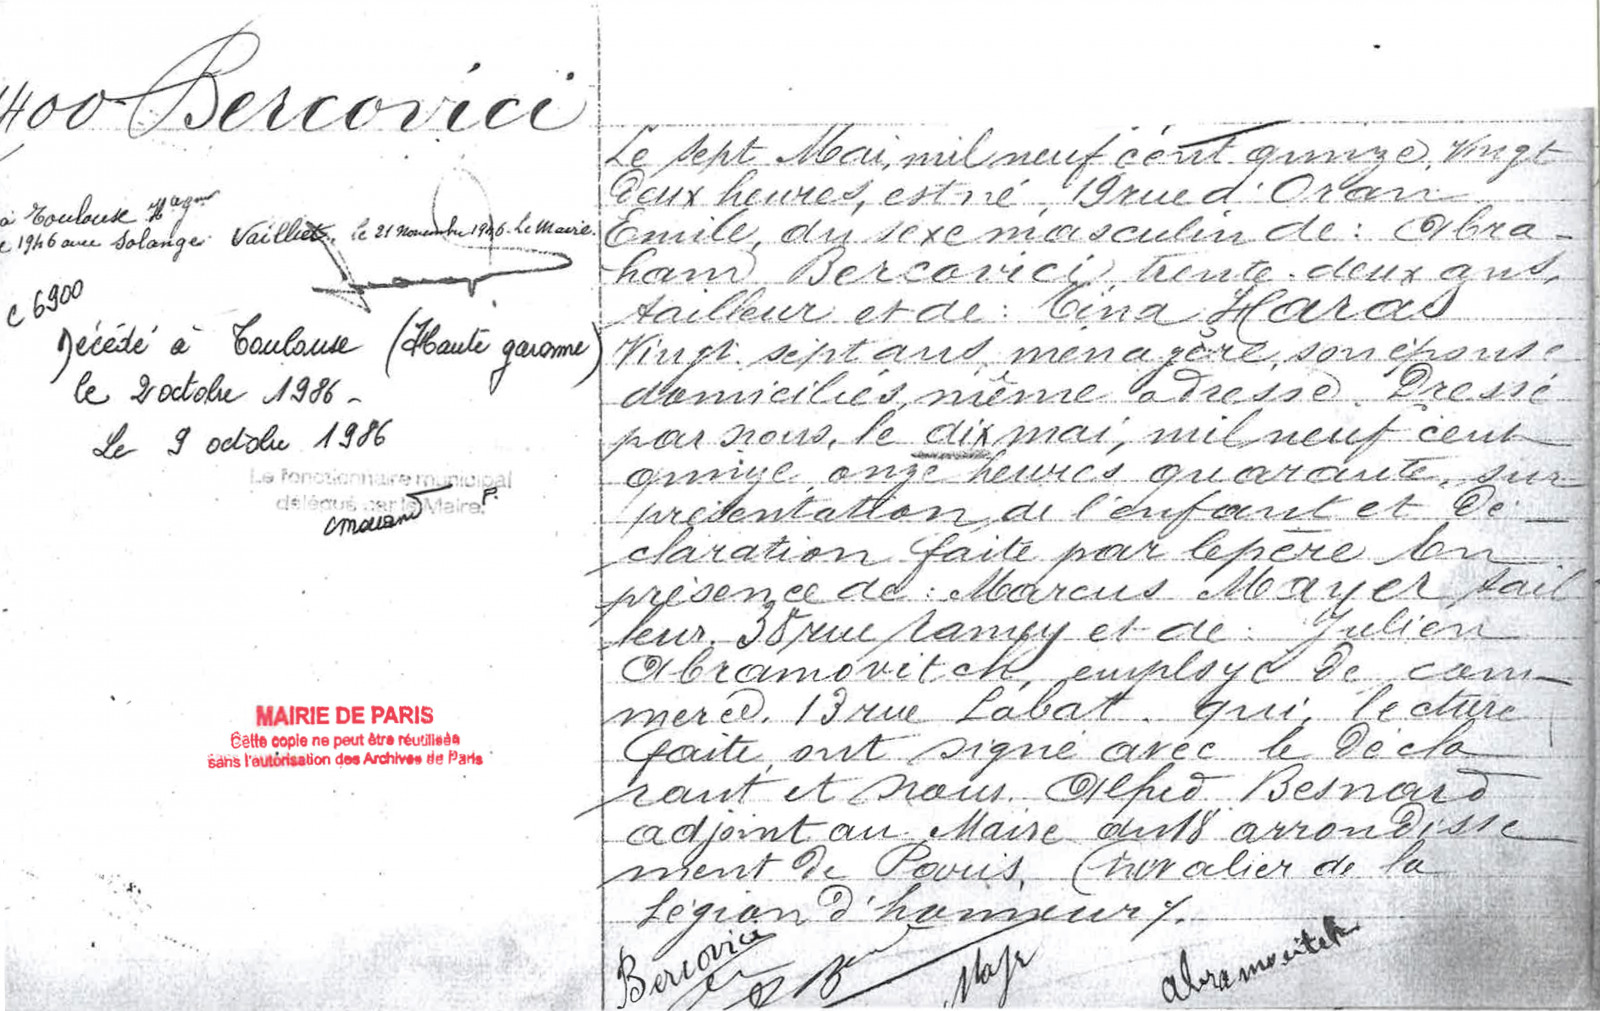 1400 Bercovici
à Toulouse Hte gar
1946 avec Solange Vaillet le 21 novembre 1946. Le Maire.
c 6900
Décédé à Toulouse (Haute garonne)
le 2 octobre 1986 -
Le 9 octobre 1986
Le fonctionnaire municipal
délégué par le Maire.
MAIRIE DE PARIS
Cette copie ne peut être réutilisée
sans l'autorisation des Archives de Paris
Le sept Mai, mil neuf cent quinze, Vingt
deux heures, est né, 19 rue d'Oran
Emile, du sexe masculin de : Abra-
ham Bercovici, trente-deux ans,
tailleur et de : Tina Haras
Vingt sept ans, ménagère, son épouse
domiciliés, même adresse. Dressé
par nous, le dix mai, mil neuf cent
quinze, onze heures quarante, sur
présentation de l'enfant et dé-
claration faite par le père En
présence de : Marcus Mayer tail
leur, 38 rue Ramey et de : Julien
Abramovitch, employé de com-
merce, 13 rue Labat. qui, lecture
faite, ont signé avec le décla
rant et nous. Alfred Besnard
adjoint au Maire du 18 arrondisse
ment de Paris, Chevalier de la
Légion d'honneur /.
Bercovici
Abramovitch